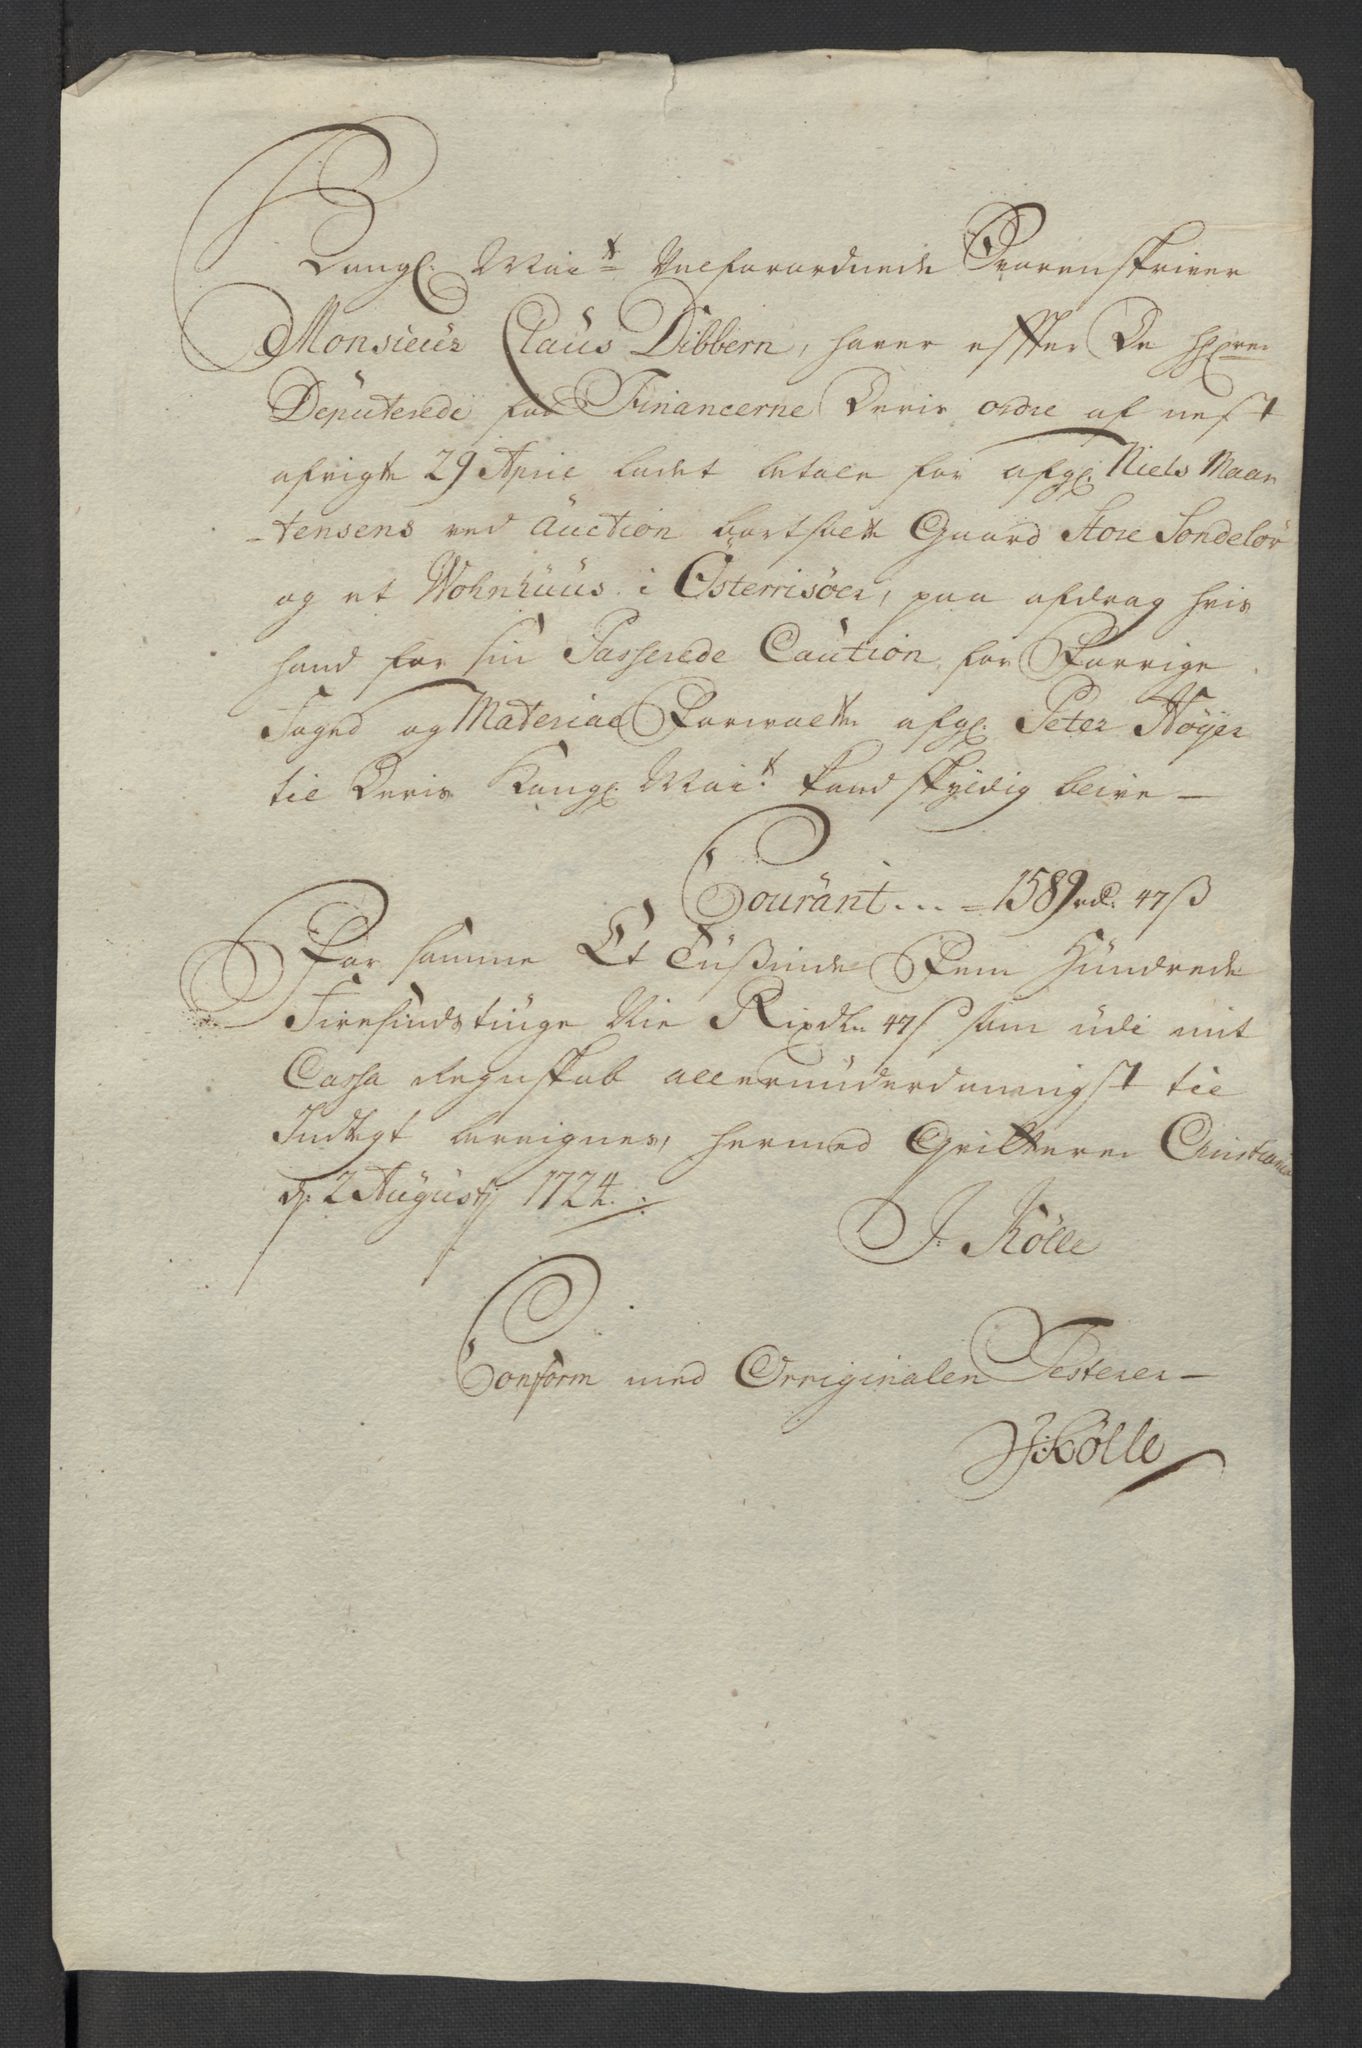 Kongl. Mai:ts Velforordnede Sorenskriver
Monsieur Claus Dibbern, haver effter De
Deputerede for Financerne Deris ordre af nest
afvigte 29 April ladet betale for afg: Niels Maar
-tensens ved Auction bortsolte Gaard Store Sondeløv
og et Wohnhuus i Österrisöer, paa afdrag hvis
hand for sin Passerede Caution for Forrige
Foged og Material Forvalter afg: Peter Höyer
til Deris Kongl: Mai:t kand skyldig blive —
Courant... = 1589 rd. 47 ß
For samme Et Tußinde Fem Hundrede
Firesindstiuge Nie Rixdlr 47 ß som udi mit
Cassa Regnskab allerunderdanigst til
Indtegt bereignes, hermed Qvitterer Christiania
d: 2 Augustj 1724.
J: Kölle
Conform med Orriginalen Testerer —
J: Kölle